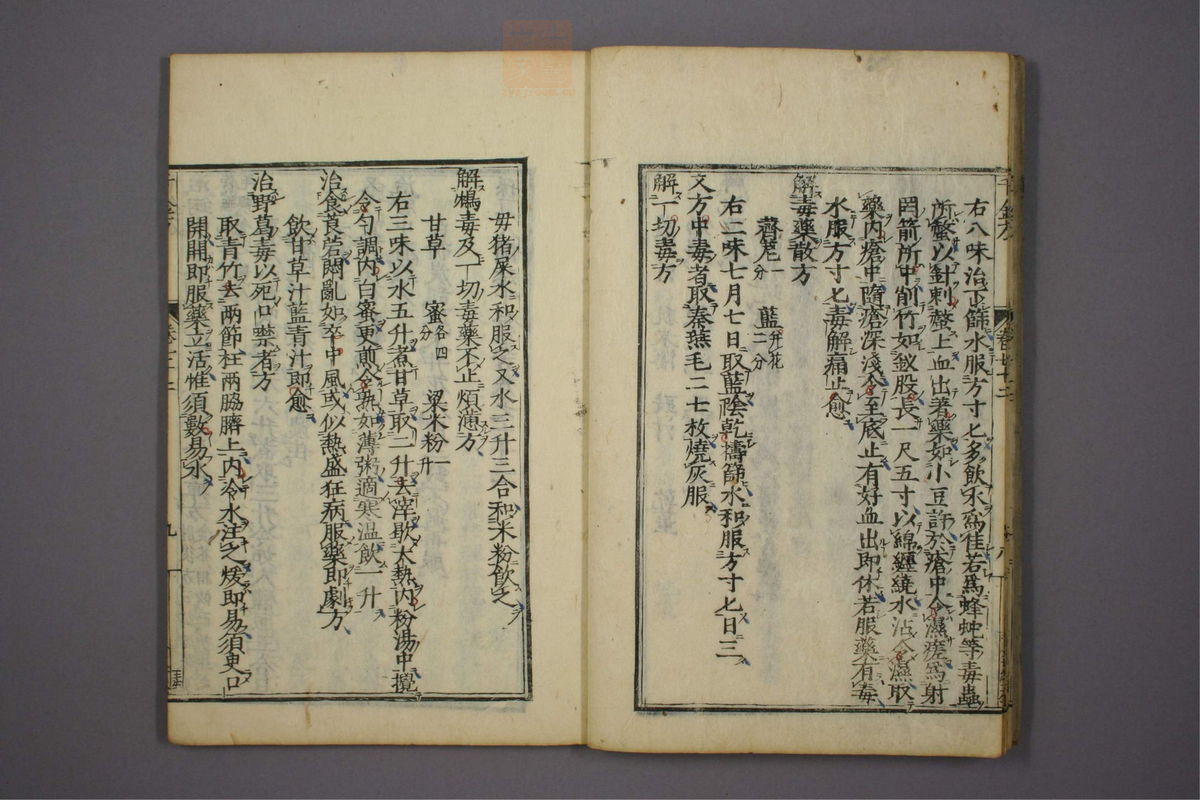 右八味治下篩水服方寸匕多飲水爲佳若爲蜂蛇等毒蟲
所螫以針刺螫上血出著藥如小豆許於瘡中令濕瘥爲射
罔箭所中削竹如釵股長一尺五寸以綿纏繞水沾令濕取
藥内瘡中隨瘡深淺令至底止有好血出即休若服藥有毒
水服方寸匕毒解痛止愈
解毒藥散方
薺苨一分 藍并花二分
右二味七月七日取藍陰乾擣篩水和服方寸匕日三
又方中毒者取秦鷰毛二七枚燒灰服
解一切毒方
母猪屎水和服之又水三升三合和米粉飲之
解鴆毒及一切毒藥不止煩懣方
甘草 蜜各四分 粱米粉一升
右三味以水五升煮甘草取二升去滓歇大熱内粉湯中攪
令勻調内白蜜更煎令熟如薄粥適寒温飲一升
治食莨菪悶亂如卒中風或似熱盛狂病服藥即劇方
飲甘草汁藍青汁即愈
治野葛毒以死口噤者方
取青竹去兩節柱兩脇臍上内冷水注之煖即易須臾口
開開即服藥立活惟須數易水
九